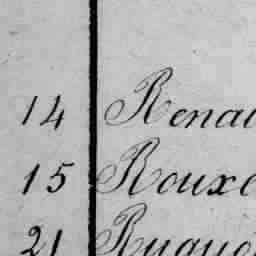 14 Renau
15 Rouxe
21